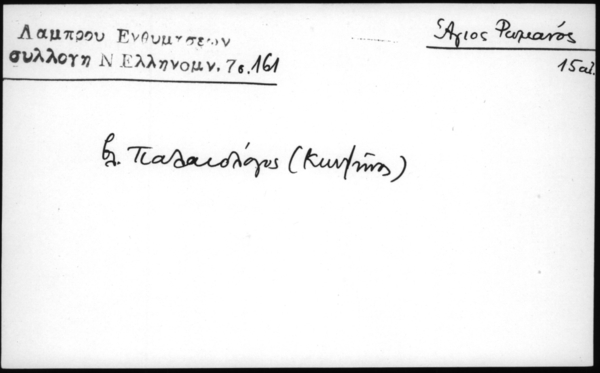 Λαμπρου Ενθυμησεων
συλλογη Ν Ελληνομν. 7ο. 161
Ἅγιος Ρωμανός
15 αἰ.
βλ. Παλαιολόγος (Κων/τῖνος)